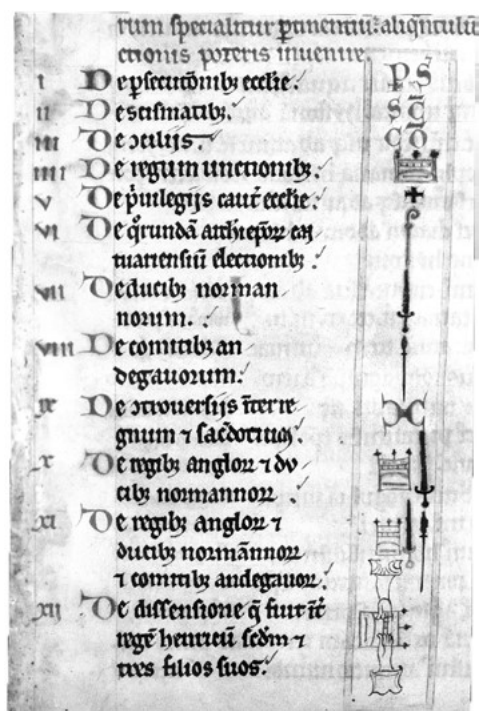 rum specialiter ꝑtinentiū: aliqͣntulū
ctionis poteris inuenire
i De ꝑsecutionibꝫ ecclie.
ii De scismatibꝫ.
iii De ↄciliis
iiii De regum unctionibꝫ.
v De pͥuilegijs cant' ecclie.
vi De qͦrundā archiepōꝝ can
tuariensiū electionibꝫ.
vii De ducibꝫ norman
norum.
viii De comitibꝫ an
degauorum.
ix De ↄtrouersijs īter re
gnum ⁊ sac̄dotium
x De regibꝫ angloꝝ ⁊ du
cibꝫ normannoꝝ
xi De regibꝫ angloꝝ ⁊
ducibꝫ normānnoꝝ
⁊ comitibꝫ andegauoꝝ.
xii De dissensione q̄ fuit īt'
regē henricū scd̄m ⁊
tres filios suos.
PS̄
SC̄
CO̅